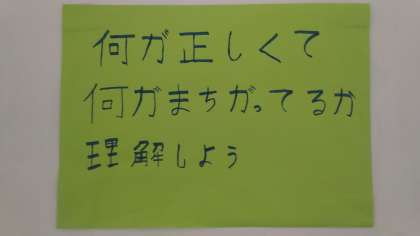 何が正しくて
何がまちがってるか
理解しよう